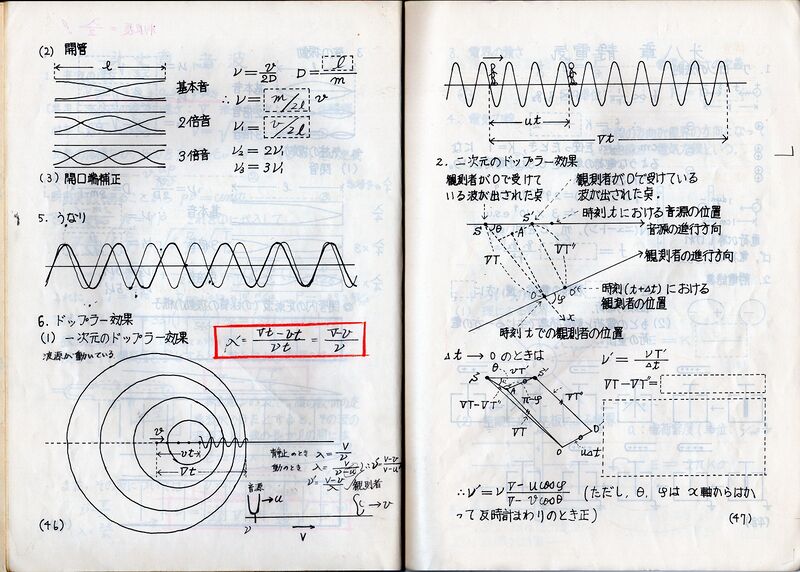 (2) 開管
l
ν = v/2D  D = l/m
基本音
∴ ν = m/2l v
2倍音
ν₁ = v/2l
ν₂ = 2ν₁
3倍音
ν₃ = 3ν₁
(3) 開口端補正
5. うなり
6. ドップラー効果
(1) 一次元のドップラー効果
λ = (Vt − vt)/νt = (V−v)/ν
波源が動いている
v
vt
Vt
静止のとき λ = V/ν
動のとき λ = V/
音源
観測者
→u
→v
ν
V
(46)
ut
Vt
2. 二次元のドップラー効果
観測者がOで受けて
いる波が出された点
観測者がO'で受けている
波が出された点
時刻 t における音源の位置
音源の進行方向
S S'
θ A
VT VT'
観測者の進行方向
O O'
φ
x
時刻 (t+Δt) における
観測者の位置
時刻 t での観測者の位置
Δt → 0 のときは
ν' = νT'/Δt
VT − VT' =
θ
π−φ
VT−VT'
VT
VT'
O
O'
uΔt
∴ ν' = ν (V − u cosφ)/(V − v cosθ) (ただし, θ, φは x 軸からはか
って反時計まわりのとき正)
(47)